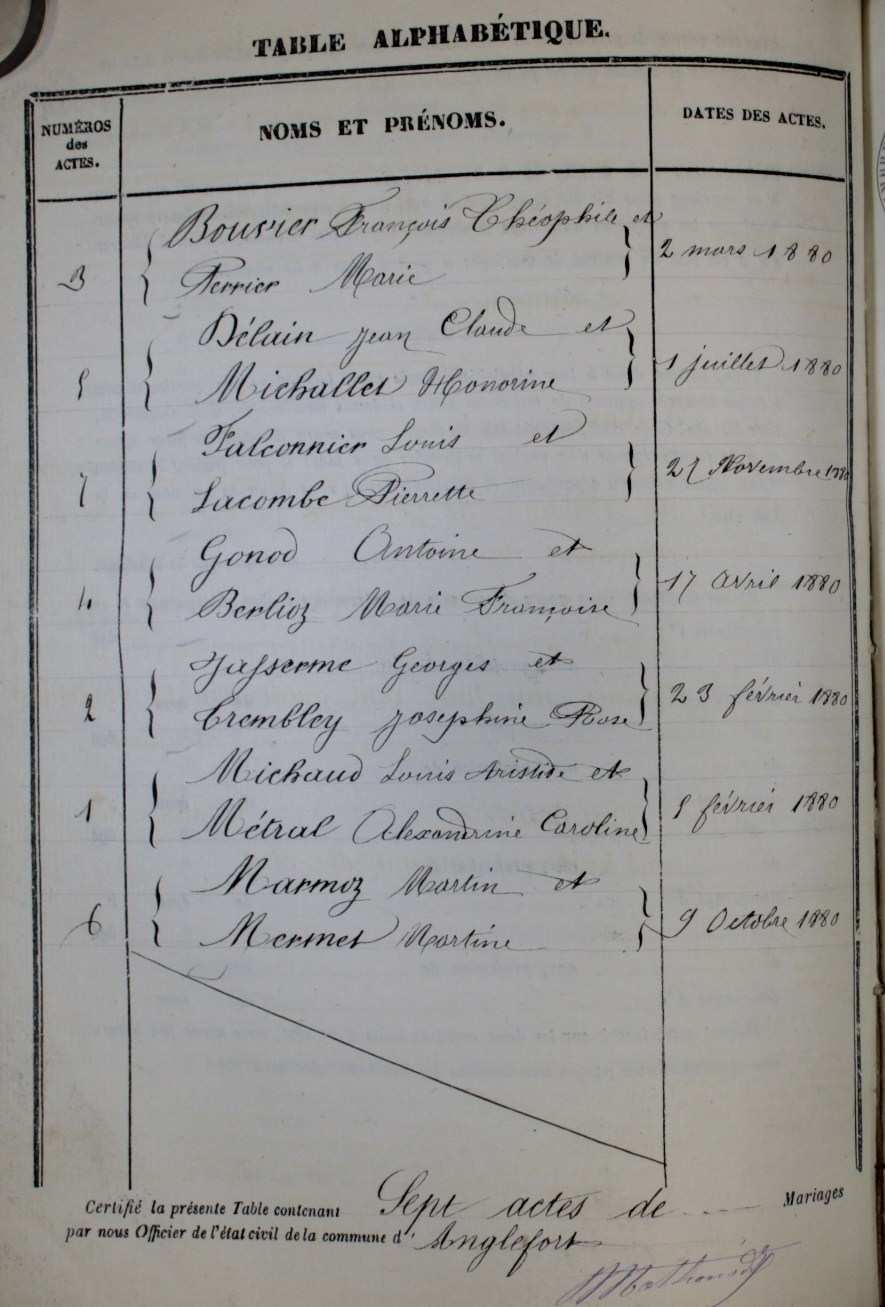 TABLE ALPHABÉTIQUE.
NUMÉROS
des
ACTES.
NOMS ET PRÉNOMS.
DATES DES ACTES.
Bouvier François Théophile et
3 Perrier Marie 2 mars 1880
Délain Jean Claude et
5 Michallet Honorine 1 juillet 1880
Falconnier Louis et
7 Lacombe Pierrette 27 Novembre 1880
Gonod Antoine et
4 Berlioz Marie Françoise 17 avril 1880
Jasserme Georges et
2 Trembley Josephine Rose 23 février 1880
Michaud Louis Aristide et
1 Métral Alexandrine Caroline 5 février 1880
Marmoz Martin et
6 Mermet Martine 9 Octobre 1880
Certifié la présente Table contenant Sept actes de Mariages
par nous Officier de l'état civil de la commune d' Anglefort